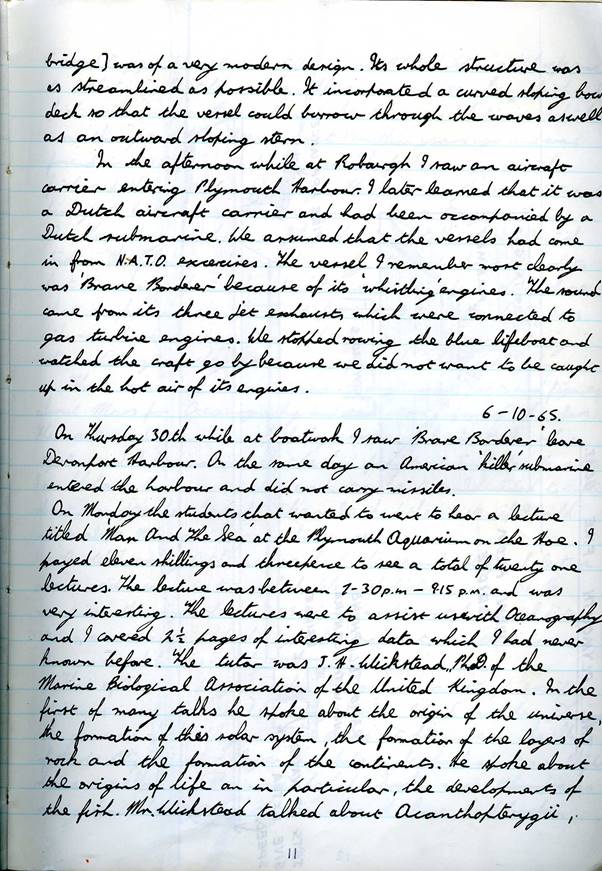 bridge] was of a very modern design. Its whole structure was
as streamlined as possible. It incorpated a curved sloping bow
deck so that the vessel could burrow through the waves aswell
as an outward sloping stern.
In the afternoon while at Roburgh I saw an aircraft
carrier entering Plymouth Harbour. I later learned that it was
a Dutch aircraft carrier and had been accompanied by a
Dutch submarine. We assumed that the vessels had come
in from N.A.T.O. excercises. The vessel I remember most clearly
was 'Brave Borderer' because of its 'whistling' engines. The sound
came from its three jet exhausts which were connected to
gas turbine engines. We stopped rowing the blue lifeboat and
watched the craft go by because we did not want to be caught
up in the hot air of its engines.
6-10-65.
On Thursday 30th while at boatwork I saw 'Brave Borderer' leave
Devonport Harbour. On the same day an American 'killer' submarine
entered the harbour and did not carry missiles.
On Monday the students that wanted to went to hear a lecture
titled 'Man And The Sea' at the Plymouth Aquarium on the Hoe. I
payed eleven shillings and threepence to see a total of twenty one
lectures. The lecture was between 7-30p.m - 9.15 p.m. and was
very interesting. The lectures were to assist us with Oceanography
and I covered 2½ pages of interesting data which I had never
known before. The tutor was J.H. Wickstead, Ph.D. of the
Marine Biological Association of the United Kingdom. In the
first of many talks he spoke about the origin of the universe,
the formation of this solar system, the formation of the layers of
rock and the formation of the continents. He spoke about
the origins of life an in particular, the developments of
the fish. Mr. Wickstead talked about Acanthopterygii,
11